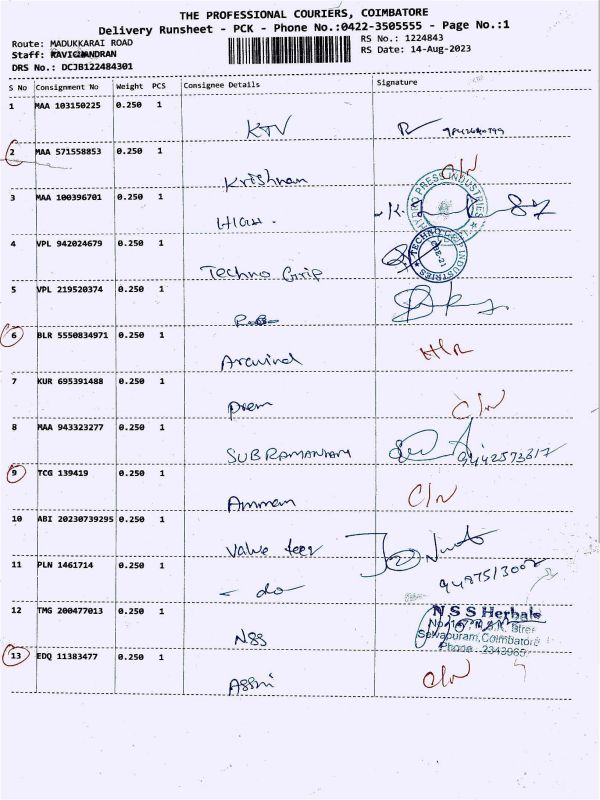 THE PROFESSIONAL COURIERS, COIMBATORE
Delivery Runsheet - PCK - Phone No.:0422-3505555 - Page No.:1
Route: MADUKKARAI ROAD RS No.: 1224843
Staff: RAVICHANDRAN RS Date: 14-Aug-2023
DRS No.: DCJB122484301
S No Consignment No Weight PCS Consignee Details Signature
1 MAA 103150225 0.250 1
KTV
2 MAA 571558853 0.250 1
Krishnan C/N
3 MAA 100396701 0.250 1
HYDRO PRESS INDUSTRIES
4 VPL 942024679 0.250 1
Techno Grip TECHNO GRIP INDUSTRIES CBE-21
5 VPL 219520374 0.250 1
6 BLR 5550834971 0.250 1
Aravind
7 KUR 695391488 0.250 1
Prem C/N
8 MAA 943323277 0.250 1
SUBRAMANIAM 9442573817
9 TCG 139419 0.250 1
Amman C/N
10 ABI 20230739295 0.250 1
Value teex
11 PLN 1461714 0.250 1
- do -
12 TMG 200477013 0.250 1
NSS
NSS Herbals
Selvapuram, Coimbatore
Phone : 2343965
13 EDQ 11383477 0.250 1
C/N